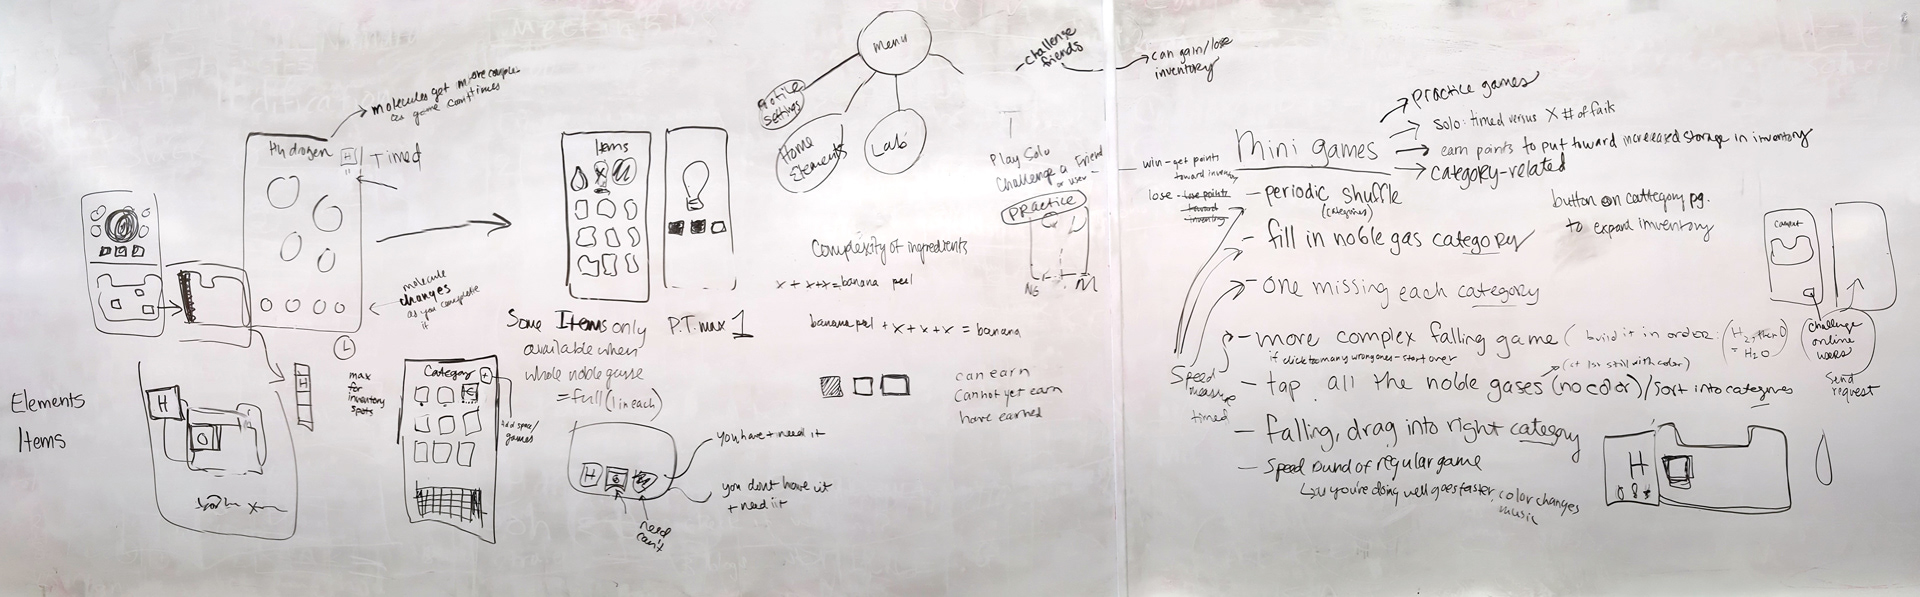 molecules get more complex
as game continues
Hydrogen
H
Timed
molecule
changes
as you complete
it
H
max
for
inventory
spots
Elements
Items
H
O
Items
Some Items only
available when
whole noble gasse
= full (1 in each)
P.T. max 1
Category
+
add space/
games
you have + need it
you dont have it
+ need it
H
need
can't
Menu
Profile
Settings
Home
Elements
Lab
challenge
friends
can gain/lose
inventory
Play Solo
Challenge a Friend
or user
Practice
NG
M
Complexity of ingredients
x + x + x = banana peel
banana peel + x + x + x = banana
can earn
cannot yet earn
have earned
Mini games
practice games
solo: timed versus X # of fails
earn points to put toward increased storage in inventory
category-related
win - get points
toward inventory
lose - lose points
toward
inventory
- periodic shuffle
(categories)
- fill in noble gas category
- one missing each category
- more complex falling game (build it in order: (H2, then O
= H2O
if click too many wrong ones - start over
(at 1st still with color)
- tap all the noble gases (no color)/sort into categories
Speed
measure
timed
- falling, drag into right category
- speed round of regular game
as you're doing well goes faster, color changes
music
button on cattegory pg.
to expand inventory
Challenge
online
users
Send
request
H